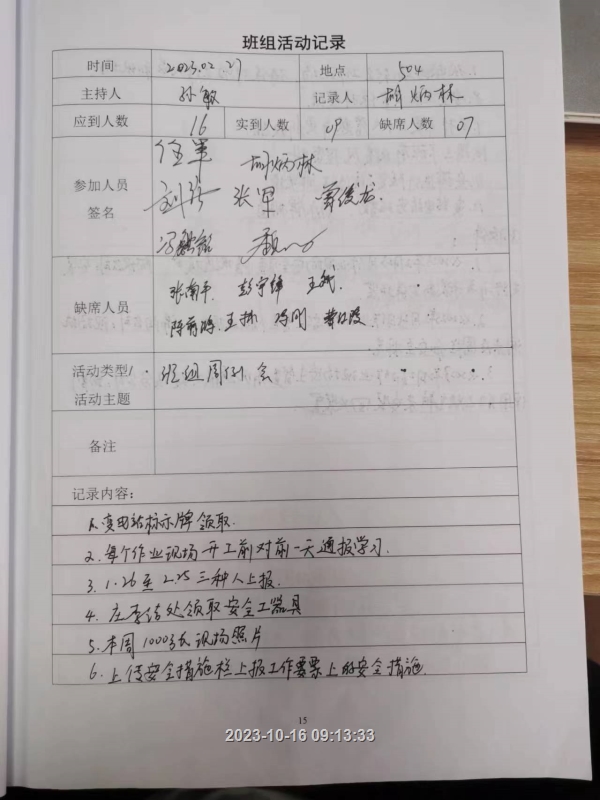 班组活动记录
时间 2023.02.27 地点 504
主持人 孙敏 记录人 胡炳林
应到人数 16 实到人数 09 缺席人数 07
参加人员
签名
胡炳林
张军
缺席人员
张南平 彭宇锋
王林 冯刚
活动类型/
活动主题
班组周例会
备注
记录内容:
1.变电站标示牌领取.
2.每个作业现场开工前对前一天通报学习.
3.1.26至2.25三种人上报.
4.庄李结处领取安全工器具
5.本周1000多张现场照片
6.上传安全措施栏上报工作票票上的安全措施.
15
2023-10-16 09:13:33